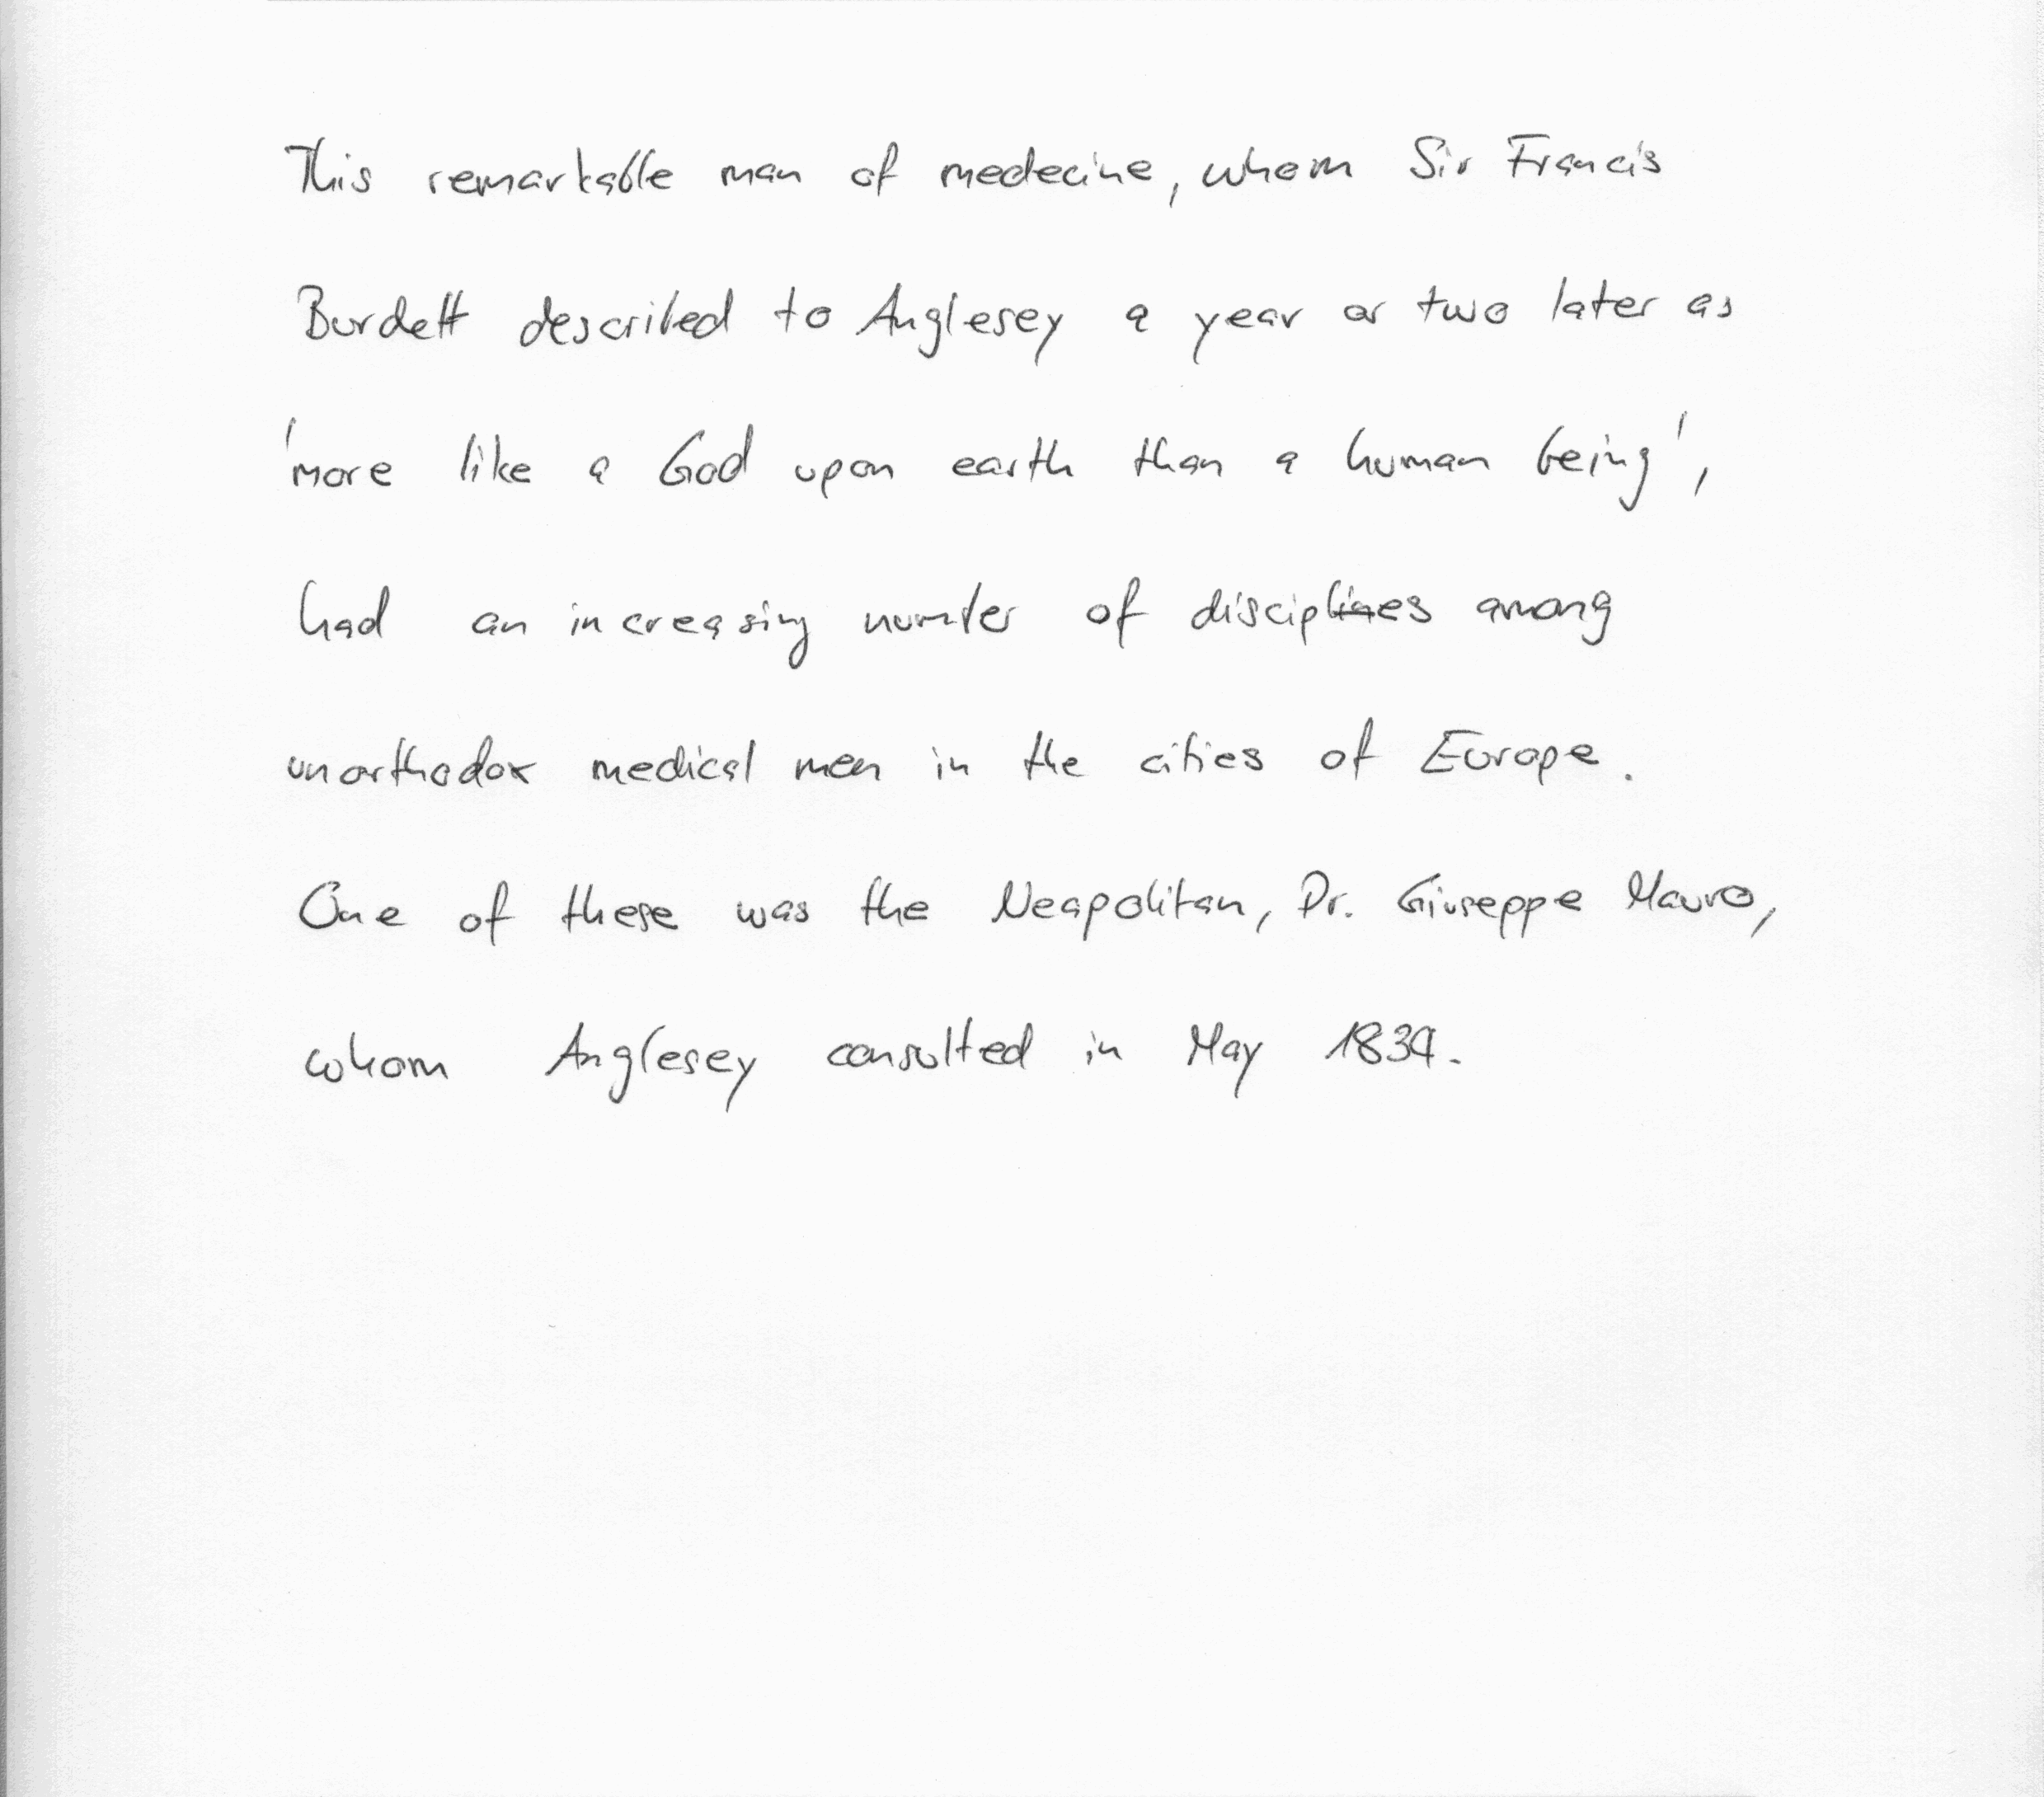 This remarkable man of medecine, whom Sir Francis
Burdett described to Anglesey a year or two later as
'more like a God upon earth than a human being',
had an increasing number of disciples among
unorthodox medical men in the cities of Europe.
One of these was the Neapolitan, Dr. Giuseppe Mauro,
whom Anglesey consulted in May 1834.